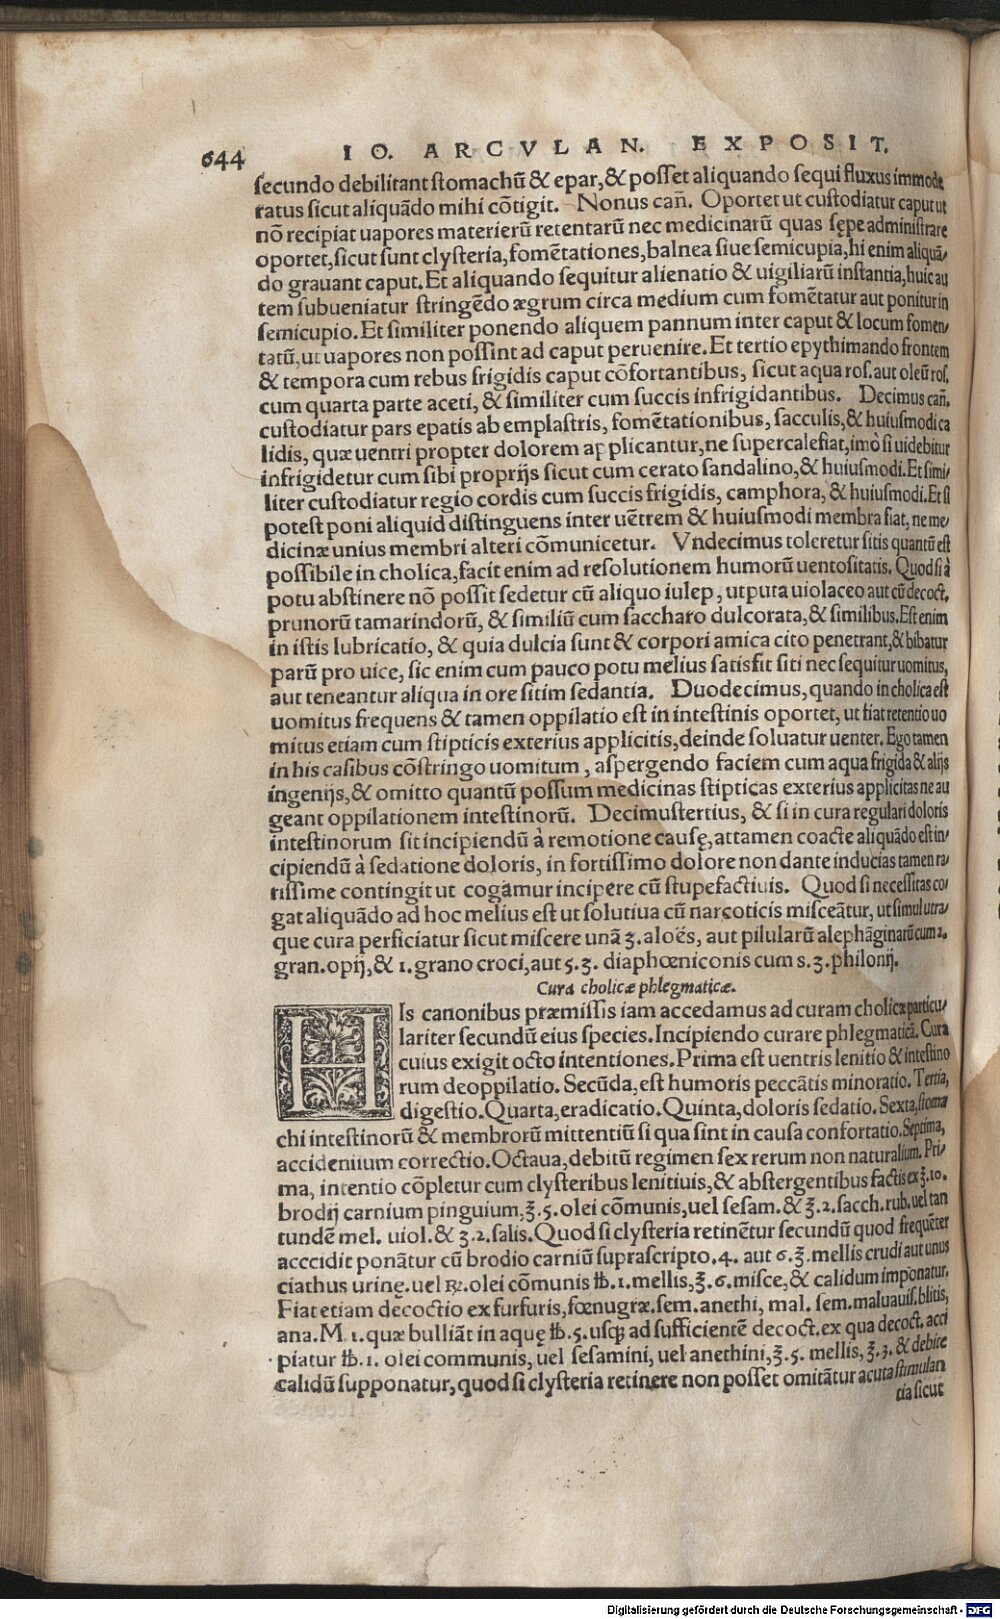 644 IO. ARCVLAN. EXPOSIT.
secundo debilitant stomachū & epar, & posset aliquando sequi fluxus immode
ratus sicut aliquādo mihi cōtigit. Nonus cañ. Oportet ut custodiatur caput ut
nō recipiat uapores materierū retentarū nec medicinarū quas sępe administrare
oportet, sicut sunt clysteria, fomētationes, balnea siue semicupia, hi enim aliquā/
do grauant caput. Et aliquando sequitur alienatio & uigiliarū instantia, huic au
tem subueniatur stringēdo ægrum circa medium cum fomētatur aut ponitur in
semicupio. Et similiter ponendo aliquem pannum inter caput & locum fomen/
tatū, ut uapores non possint ad caput peruenire. Et tertio epythimando frontem
& tempora cum rebus frigidis caput cōfortantibus, sicut aqua ros. aut oleū ros.
cum quarta parte aceti, & similiter cum succis infrigidantibus. Decimus cañ.
custodiatur pars epatis ab emplastris, fomētationibus, sacculis, & huiusmodi ca
lidis, quæ uentri propter dolorem applicantur, ne supercalefiat, imò si uidebitur
infrigidetur cum sibi proprijs sicut cum cerato sandalino, & huiusmodi. Et simi/
liter custodiatur regio cordis cum succis frigidis, camphora, & huiusmodi. Et si
potest poni aliquid distinguens inter uētrem & huiusmodi membra fiat, ne me/
dicinæ unius membri alteri cōmunicetur. Vndecimus toleretur sitis quantū est
possibile in cholica, facit enim ad resolutionem humorū uentositatis. Quod si à
potu abstinere nō possit sedetur cū aliquo iulep, ut puta uiolaceo aut cū decoct.
prunorū tamarindorū, & similiū cum saccharo dulcorata, & similibus. Est enim
in istis lubricatio, & quia dulcia sunt & corpori amica cito penetrant, & bibatur
parū pro uice, sic enim cum pauco potu melius satisfit siti nec sequitur uomitus,
aut teneantur aliqua in ore sitim sedantia. Duodecimus, quando in cholica est
uomitus frequens & tamen oppilatio est in intestinis oportet, ut fiat retentio uo
mitus etiam cum stipticis exterius applicitis, deinde soluatur uenter. Ego tamen
in his casibus cōstringo uomitum, aspergendo faciem cum aqua frigida & alijs
ingenijs, & omitto quantū possum medicinas stipticas exterius applicitas ne au
geant oppilationem intestinorū. Decimustertius, & si in cura regulari doloris
intestinorum sit incipiendū à remotione causę, attamen coacte aliquādo est in/
cipiendū à sedatione doloris, in fortissimo dolore non dante inducias tamen ra/
rissime contingit ut cogamur incipere cū stupefactiuis. Quod si necessitas co/
gat aliquādo ad hoc melius est ut solutiua cū narcoticis misceātur, ut simul utra/
que cura perficiatur sicut miscere unā ʒ. aloës, aut pilularū alephāginarū cum 2.
gran. opij, & 1. grano croci, aut 5. ʒ. diaphœniconis cum s. ʒ. philonij.
Cura cholicæ phlegmaticæ.
HIs canonibus præmissis iam accedamus ad curam cholicæ particu/
lariter secundū eius species. Incipiendo curare phlegmaticā. Cura
cuius exigit octo intentiones. Prima est uentris lenitio & intestino
rum deoppilatio. Secūda, est humoris peccātis minoratio. Tertia,
digestio. Quarta, eradicatio. Quinta, doloris sedatio. Sexta, stoma
chi intestinorū & membrorū mittentiū si qua sint in causa confortatio. Septima,
accidentium correctio. Octaua, debitū regimen sex rerum non naturalium. Pri/
ma, intentio cōpletur cum clysteribus lenitiuis, & abstergentibus factis ex ℥. 10.
brodij carnium pinguium, ℥. 5. olei cōmunis, uel sesam. & ℥. 2. sacch. rub. uel tan
tundē mel. uiol. & ʒ. 2. salis. Quod si clysteria retinētur secundū quod frequēter
acccidit ponātur cū brodio carniū suprascripto. 4. aut 6. ℥. mellis crudi aut unus
ciathus urinę. uel ℞. olei cōmunis ℔. 1. mellis, ℥. 6. misce, & calidum imponatur.
Fiat etiam decoctio ex furfuris, fœnugræ. sem. anethi, mal. sem. maluauis. blitis,
ana. M. 1. quæ bulliāt in aquę ℔. 5. usq; ad sufficientē decoct. ex qua decoct. acci
piatur ℔. 1. olei communis, uel sesamini, uel anethini, ℥. 5. mellis, ℥. 3. & debite
calidū supponatur, quod si clysteria retinere non posset omitātur acuta stimulan
tia sicut
Digitalisierung gefördert durch die Deutsche Forschungsgemeinschaft - DFG